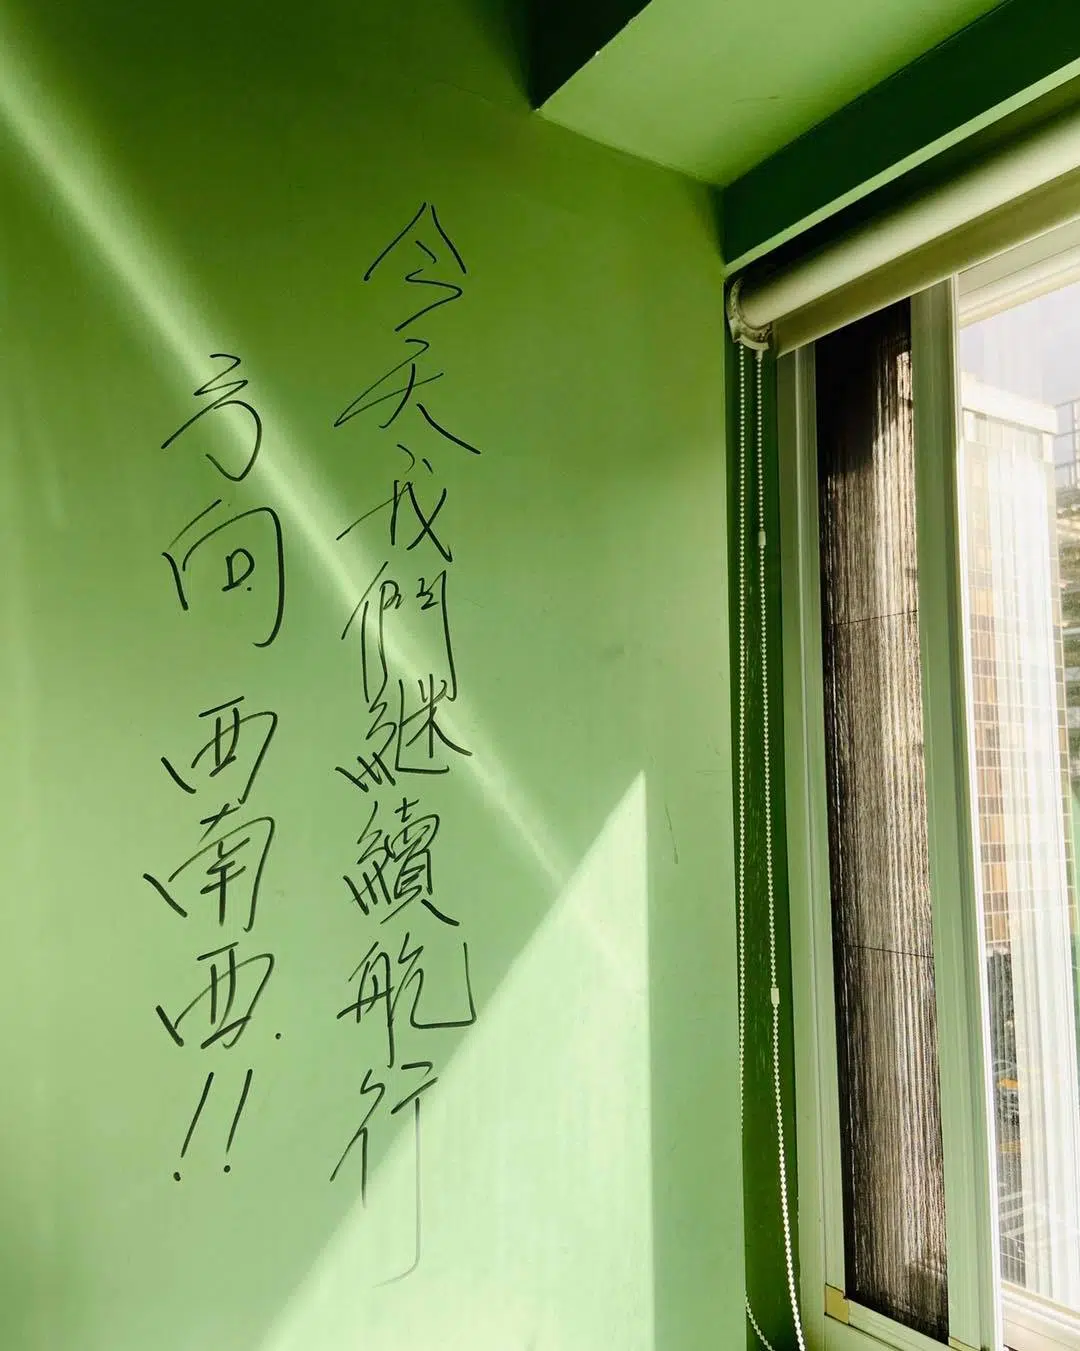 今天我們継續航行
方向 西南西!!